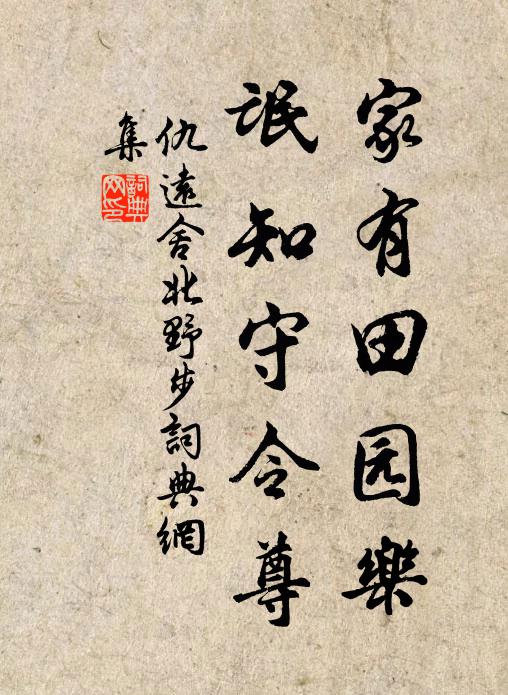 家有田园樂
氓知守令尊
仇遠舍北野步詞典網
集
詞典
网印